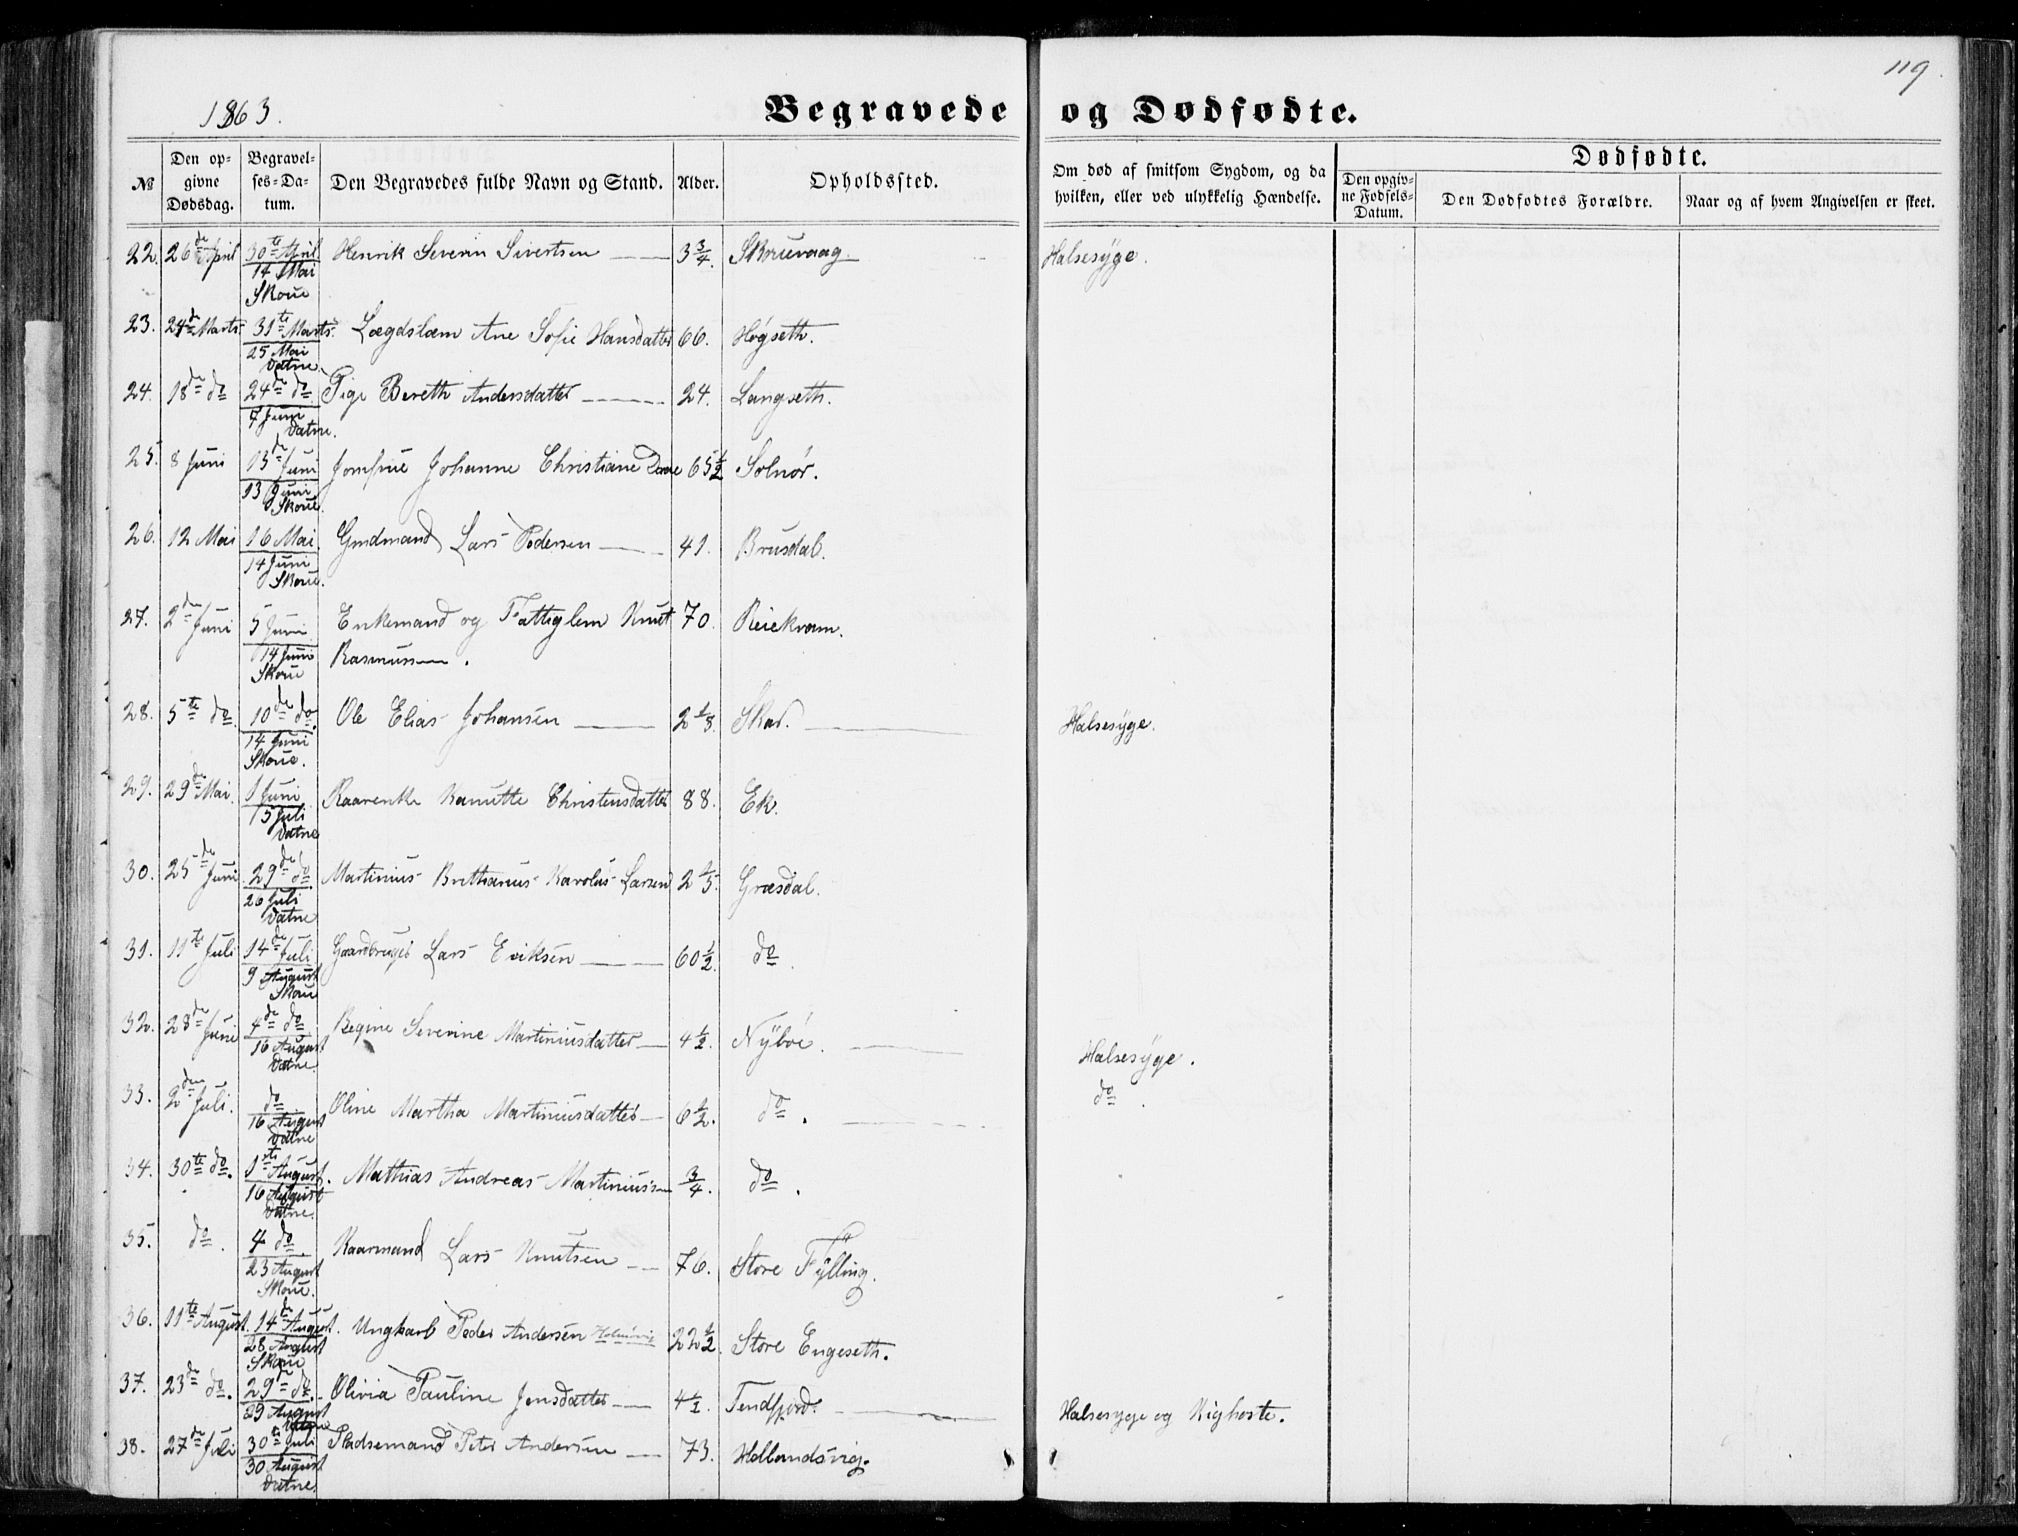 119.
1863.
Begravede og Dødfødte.
№
Den opgivne Dødsdag.
Begravelses-Datum.
Den Begravedes fulde Navn og Stand.
Alder.
Opholdssted.
Om død af smitsom Sygdom, og da hvilken, eller ved ulykkelig Hændelse.
Dødfødte.
Den opgivne Fødsels-Datum.
Den Dødfødtes Forældre.
Naar og af hvem Angivelsen er skeet.
22. 26de April 30te April Henrik Severin Sivertsen 3 3/4. Skouvaag Halsesyge.
14 Mai
Skoue
23. 24de Marts 31te Marts. Lægdslæm Ane Sofie Hansdatter 66. Høgseth.
25 Mai
Vatne.
24. 18de do 24de do. Pige Bereth Andersdatter 24. Langseth.
7 Juni
Vatne.
25. 8 Juni 13de Juni Jomfrue Johanne Christiane 65 1/2 Solnør.
13 Juni
Skoue.
26. 12 Mai 16 Mai Lars Pedersen 41. Brusdal.
14 Juni
Skoue.
27. 2den Juni 5 Juni Enkemand og Fattiglem Knut 70. Reiekvam.
14 Juni Rasmussen.
Skoue
28. 5te do. 10de do. Ole Elias Johansen 2 1/8. Skar. Halsesyge.
14 Juni
Skoue.
29. 29de Mai. 1 Juni Kaarenke Kanutte Christensdatter 88. Ek.
5 Juli
Vatne
30. 25de Juni 29de do. Martinius Karolus Larsen 2 1/5. Græsdal.
26 Juli
Vatne
31. 11te Juli 14de Juli Gaardbruger Lars Eriksen 60 1/2. do.
9 August
Skoue
32. 28de Juni 4de do Regine Severine Martiniusdatter 4 1/2. Nÿbøe. Halsesyge.
16 August
Vatne.
33. 2den Juli. do Oline Martha Martiniusdatter 6 1/2. do. do.
16 August
Vatne
34. 30te do. 1ste August. Mathias Andreas Martiniussen 3/4. do.
16 August
Vatne.
35. do. 4 do Kaarmand Lars Knutsen 76. Store Fÿlling.
23 August
Skoue.
36. 11te August. 14de August. Ungkarl Peder Andersen 22 1/2. Store Engeseth.
28 August
Skoue
37. 23de do. 29de do. Olivia Pauline Jensdatter 4 1/2. Tendfjord. Halsesyge og Kighoste.
29 August
Vatne
38. 27de Juli 30te Juli Pladsemand Peter Andersen 73. Hellandsvig.
30 August
Vatne.